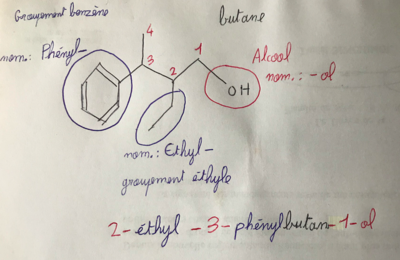 Groupement benzène
butane
nom.: Phényl-
4
3
2
1
Alcool
nom.: -ol
OH
nom.: Ethyl-
groupement éthyle
2-éthyl-3-phénylbutan-1-ol